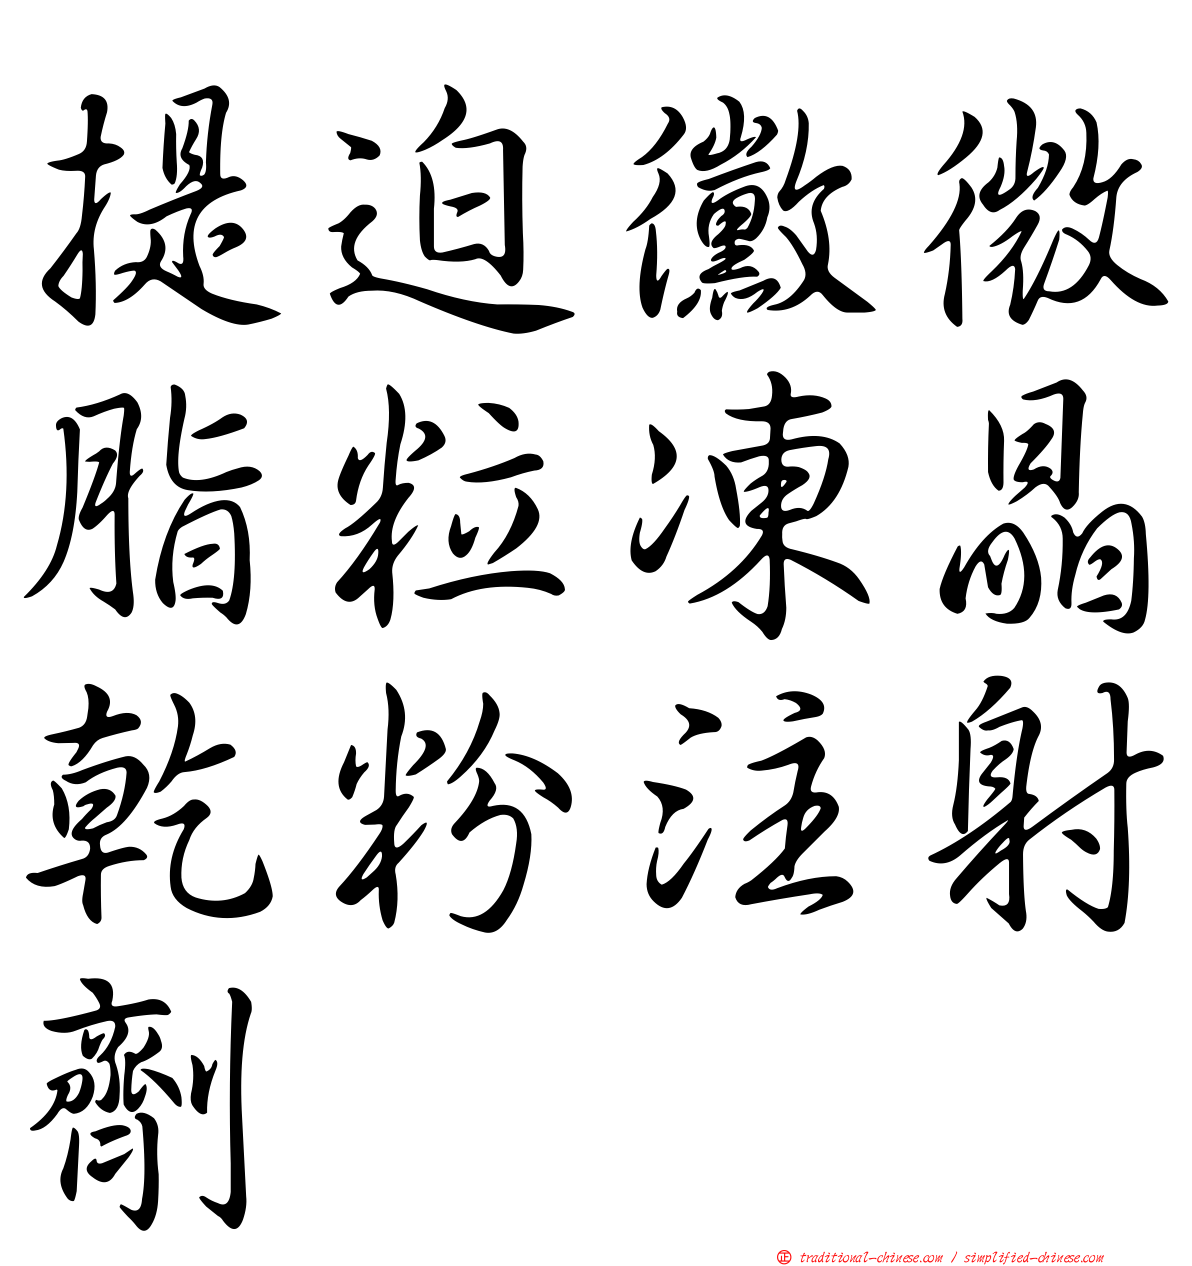 提迫黴微
脂粒凍晶
乾粉注射
劑
正 traditional-chinese.com / simplified-chinese.com